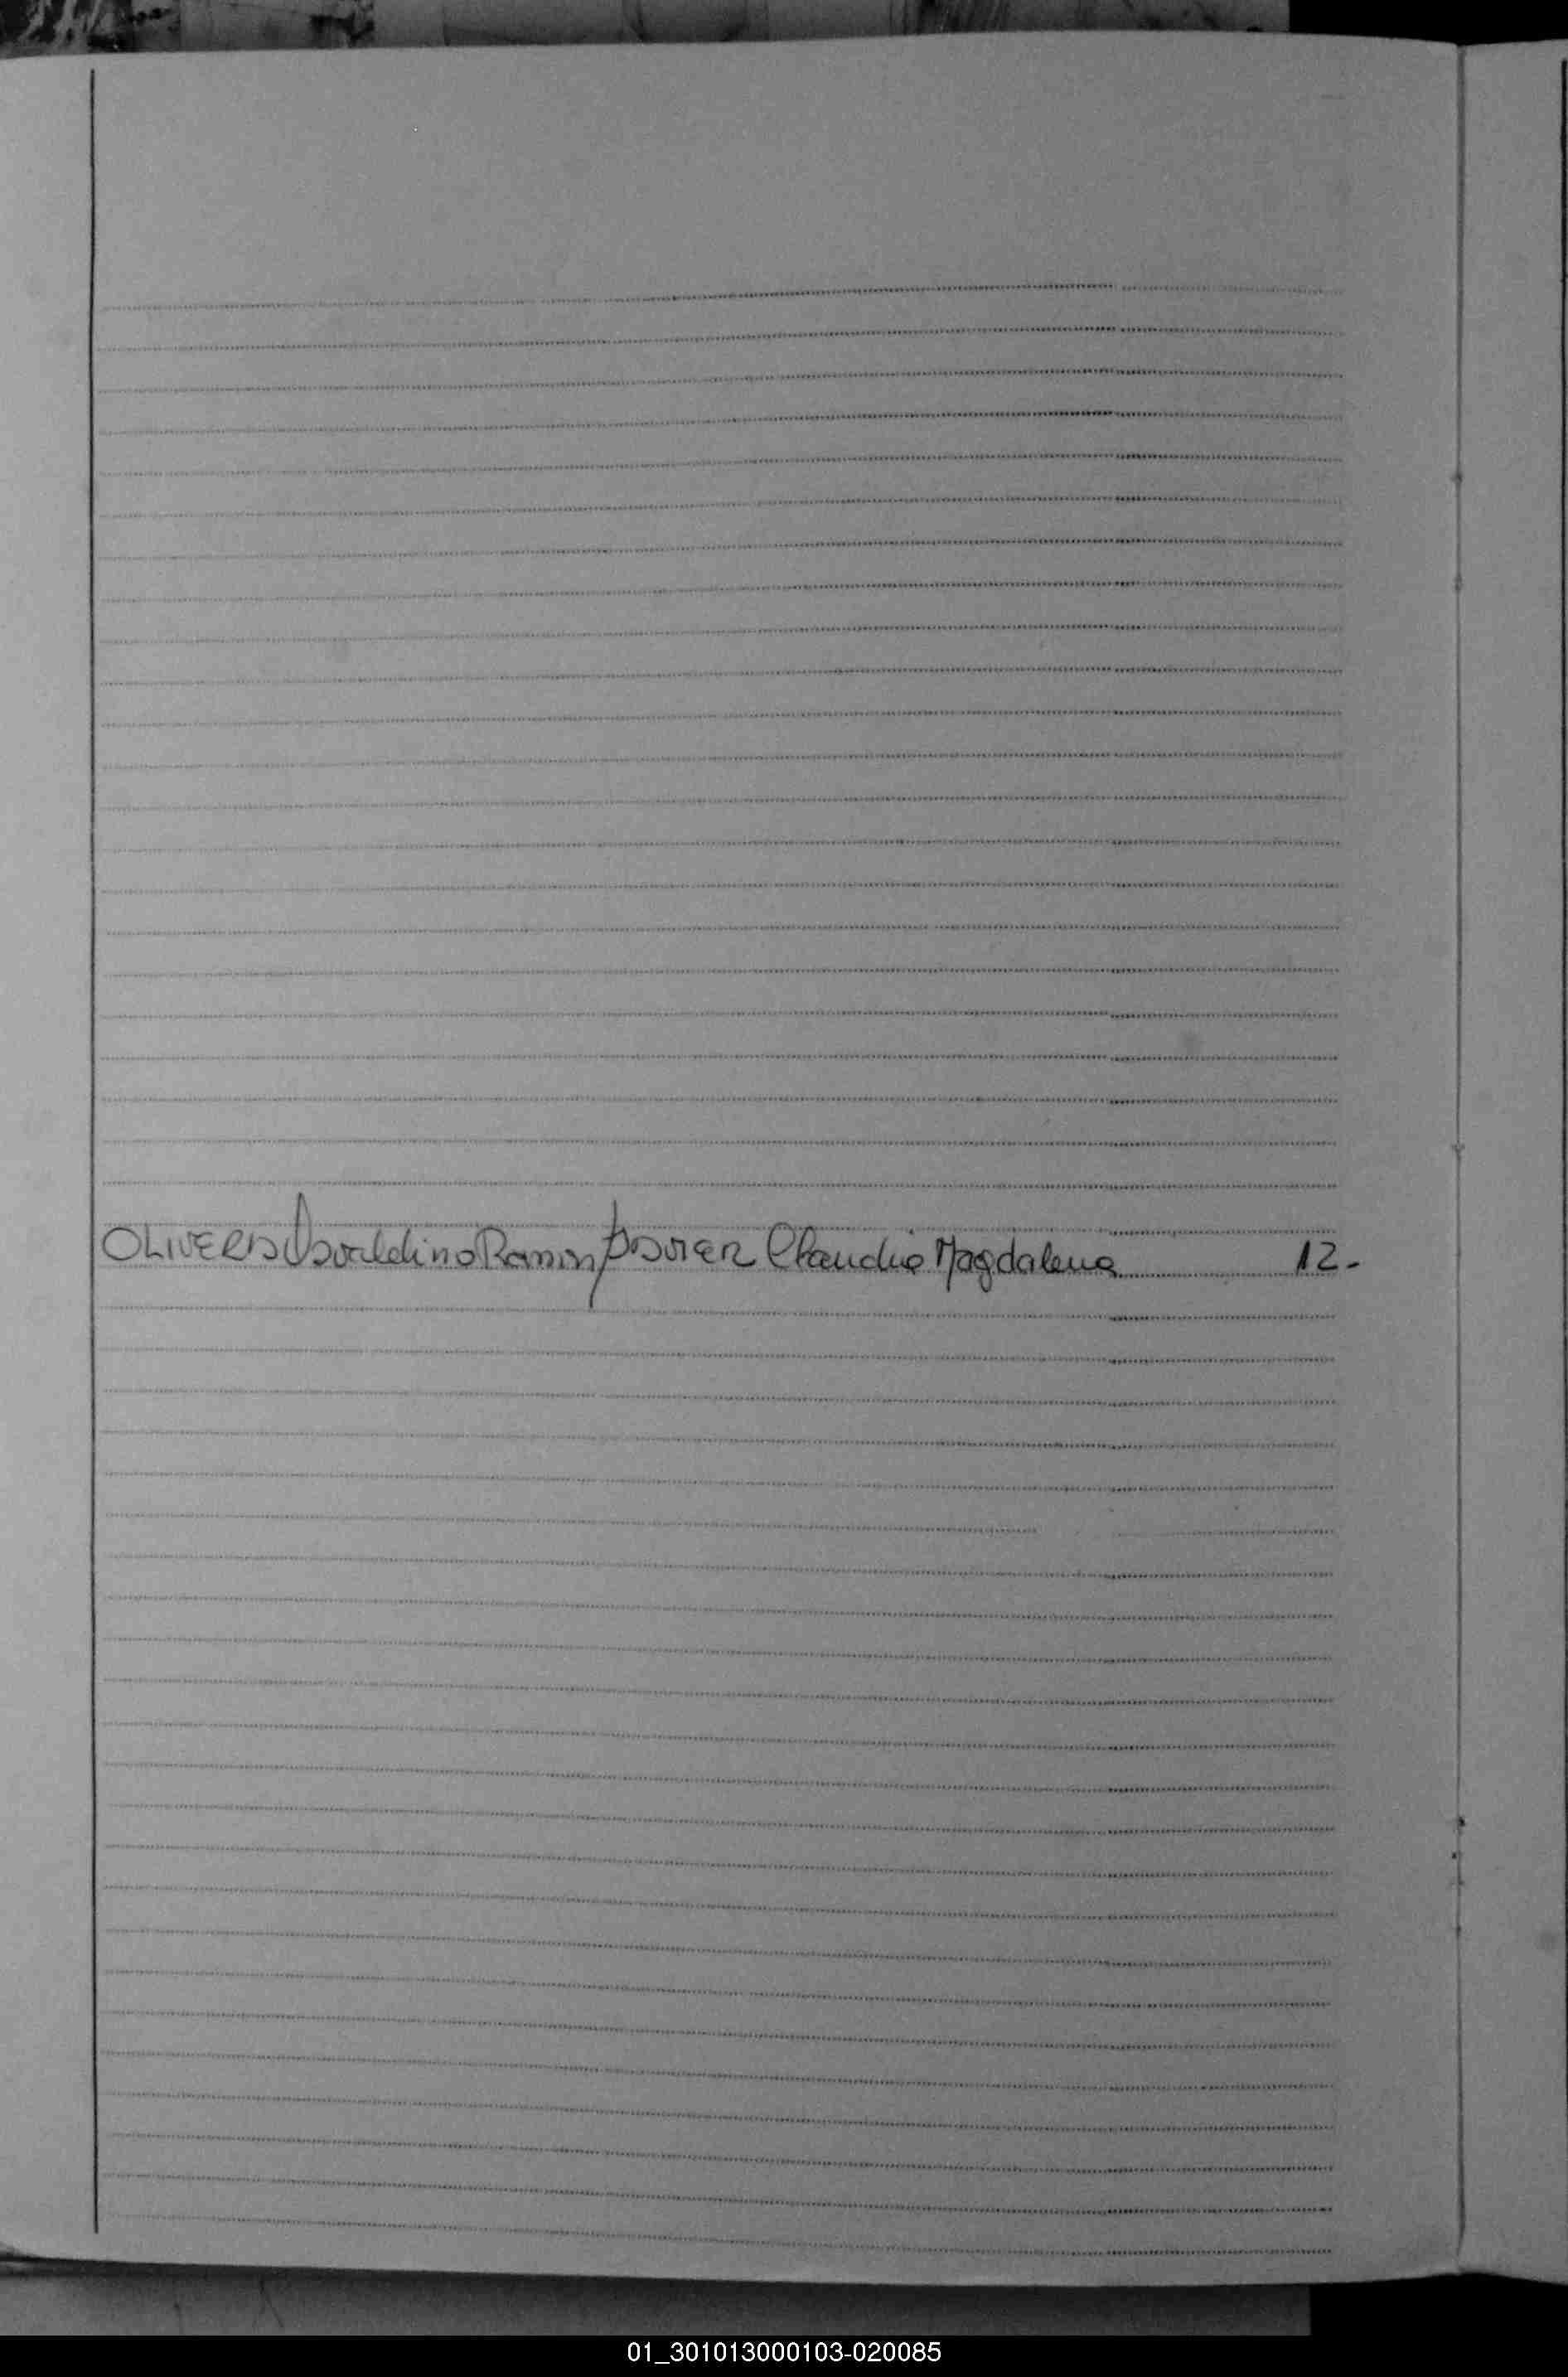 OLIVERA Osvaldino Ramon Claudia Magdalena 12.-
01_301013000103-020085